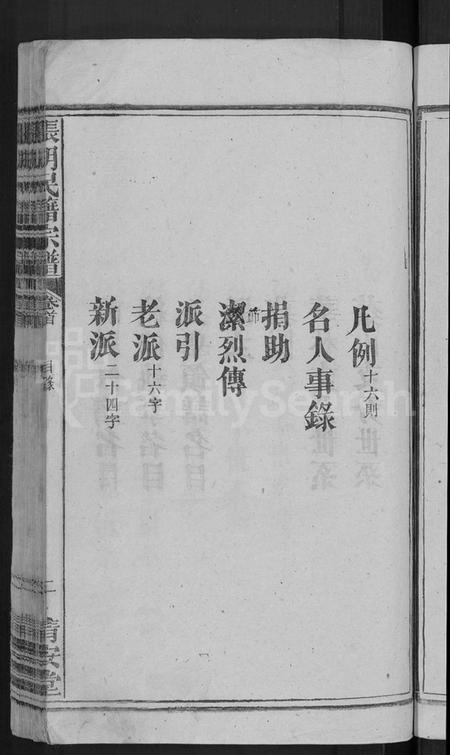 凡例十六則
名人事錄
捐助
潔烈傳
派引
老派十六字
新派二十四字
宗譜
卷首
目錄
二
FamilySearch